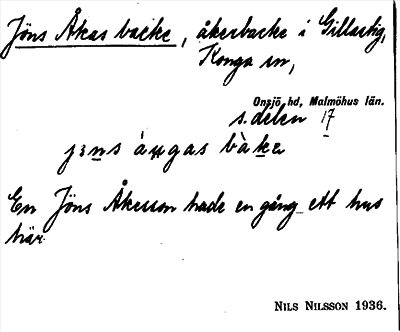 Jöns Åkas backe, åkerbacke i Gillastig,
Konga sn,
Onsjö hd, Malmöhus län.
s. delen 17
En Jöns Åkesson hade en gång ett hus
här.
NILS NILSSON 1936.